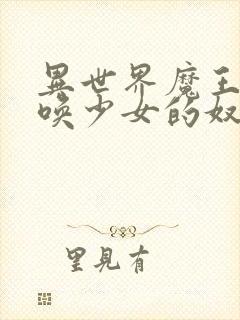 異世界魔王
喚少女的奴
里見有